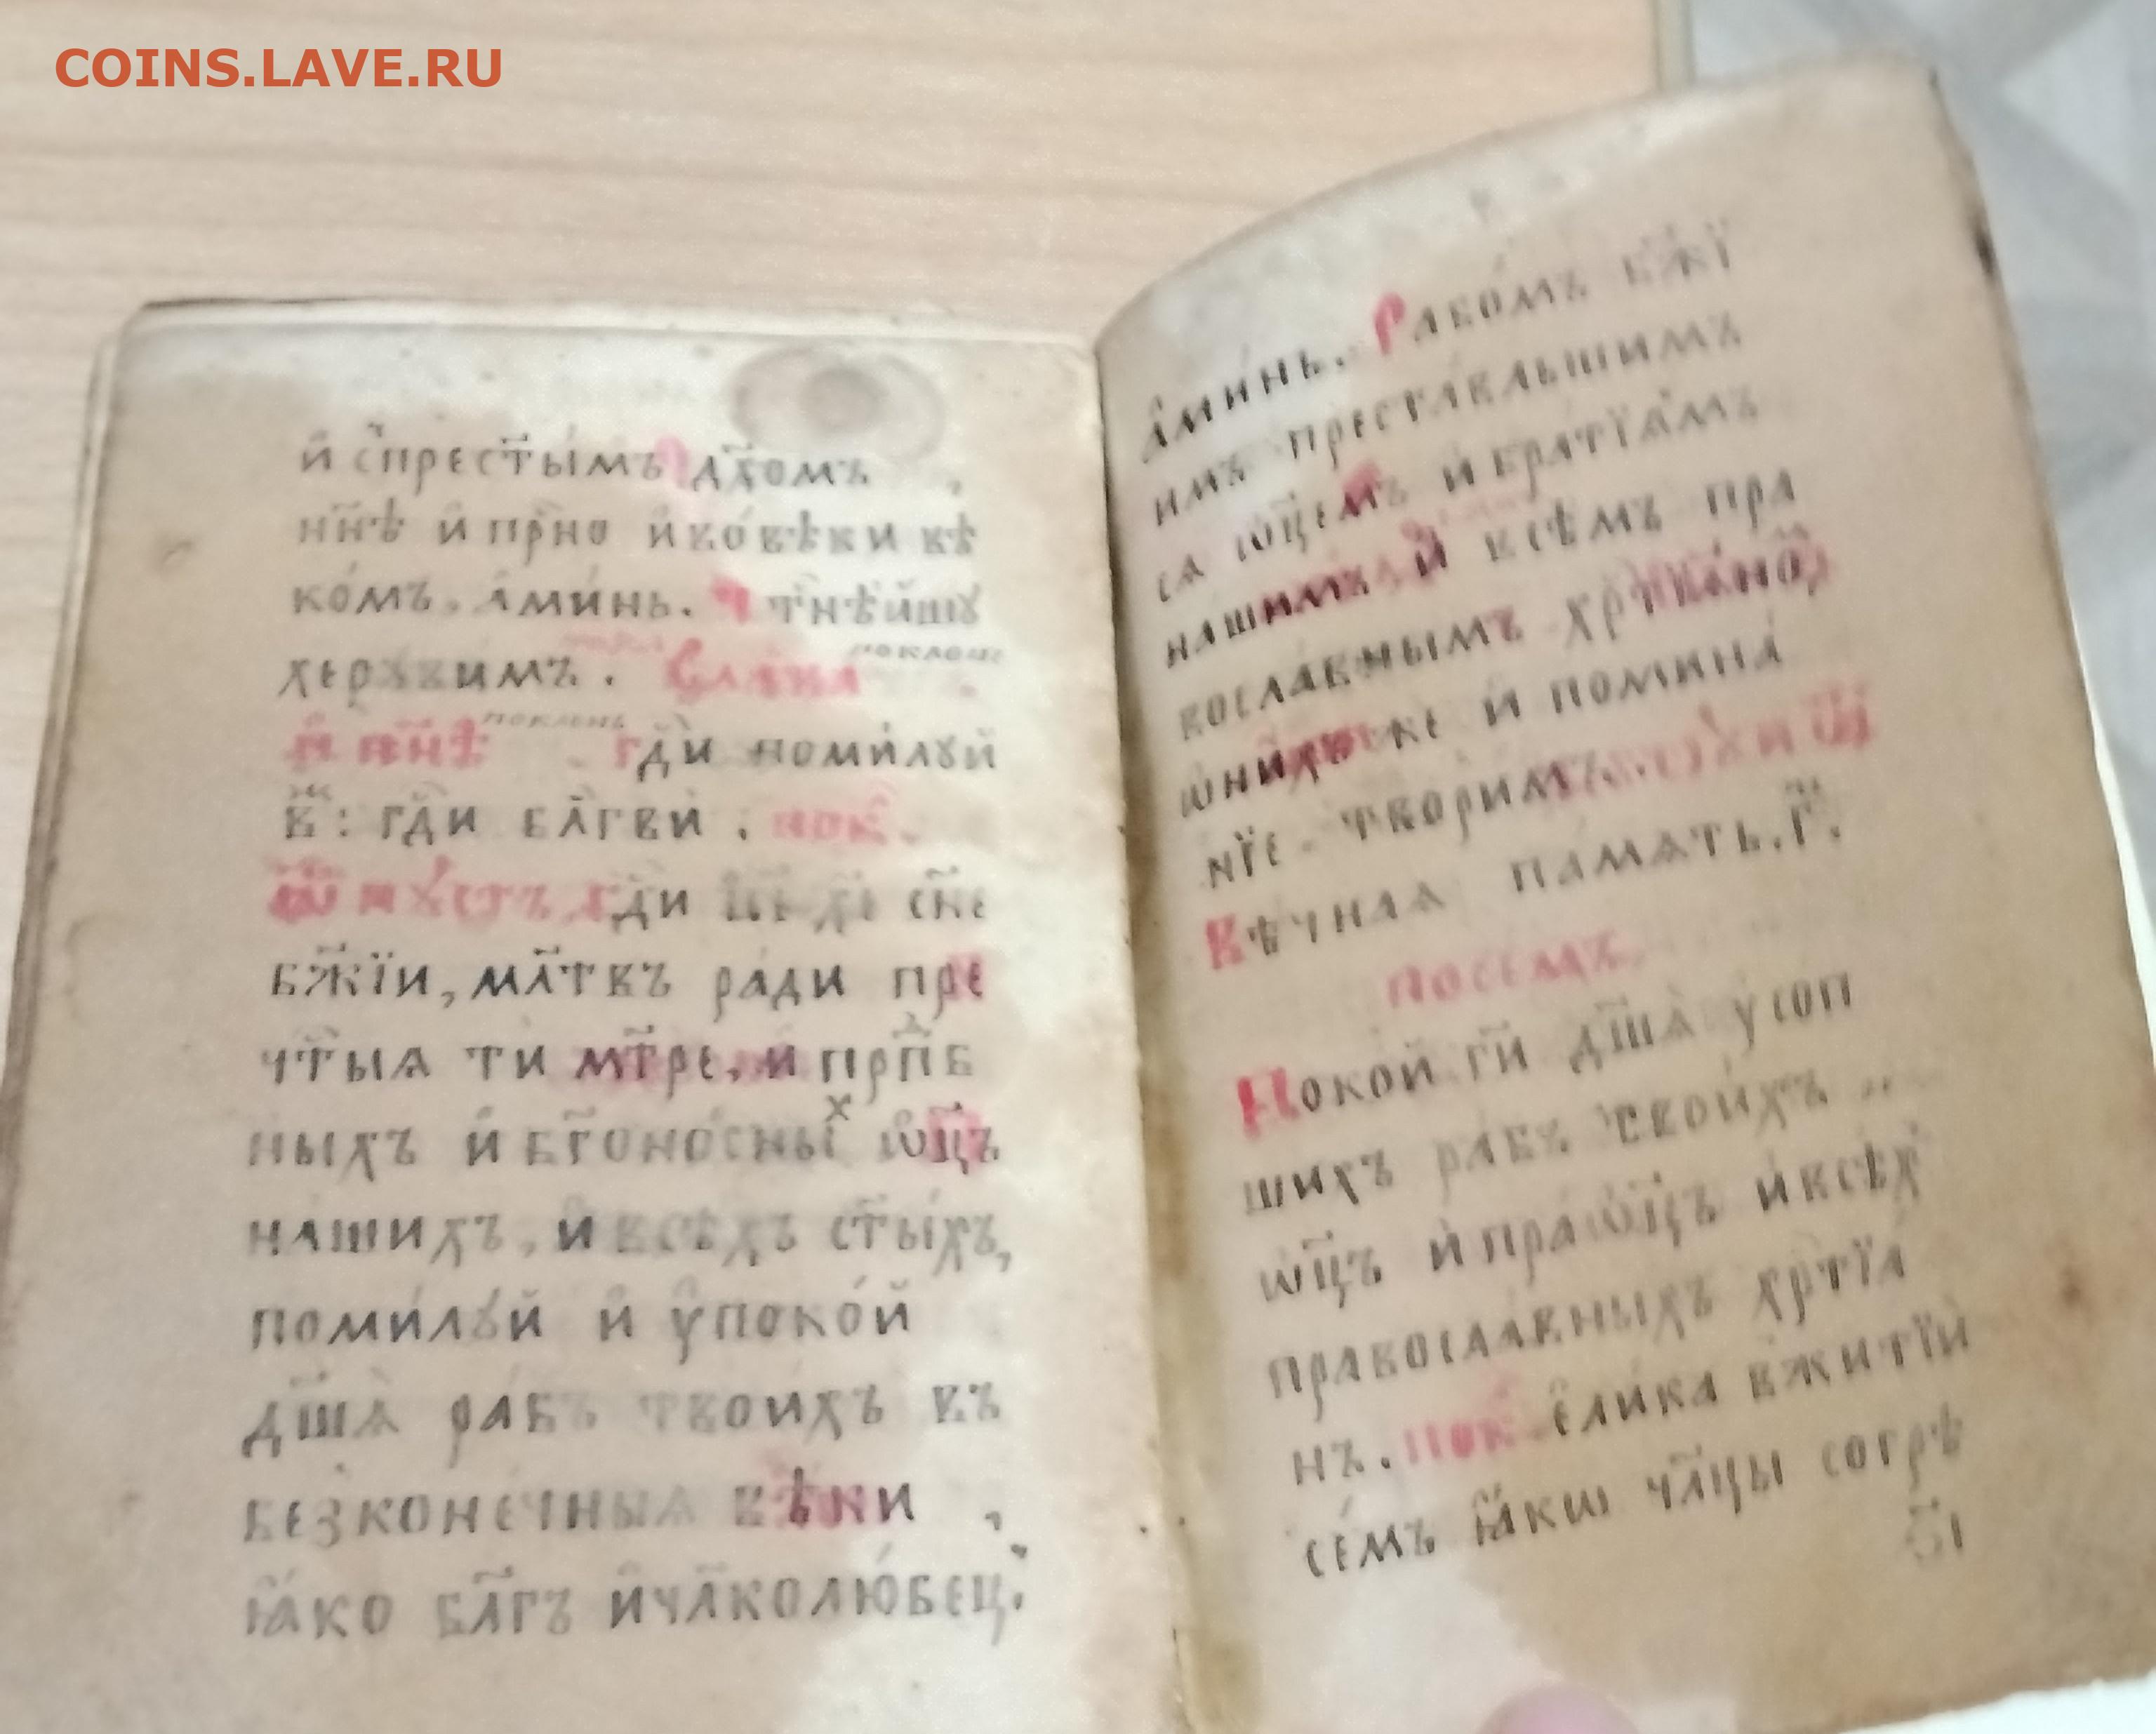 COINS.LAVE.RU
и҆ спрест҃ы́мъ дх҃омъ
нн҃ѣ и҆ прⷭ҇но и҆ во́вѣки вѣ
ко́мъ. а҆ми́нь. Чт҃нѣйшꙋ
херꙋвимъ. Сла́ва поклонъ
и҆ нн҃ѣ поклонъ гд҃и поми́лꙋй
в҃ж: гд҃и бл҃гви́. пок.
ѿпꙋстъ гд҃и і҆с҃е хр҃те сн҃е
бж҃їи, мл҃твъ ра́ди пре
чт҃ыѧ ти мт҃ре, и прпⷣб
ныхъ и҆ бг҃оно́сныⷯ ѡ҆ц҃ъ
на́шихъ, и҆ всѣхъ ст҃ы́хъ,
поми́лꙋй и҆ у҆поко́й
дш҃ѧ̀ ра́бъ твои́хъ въ
безконе́чныѧ вѣ́ки,
ꙗ҆́ко бл҃гъ и҆ чл҃колю́бец.
а҆ми́нь. Рабо́мъ бж҃їи
имъ преста́вльшимъ
сѧ ѡ҆ц҃емъ и҆ бра́тїѧмъ
на́шимъ и҆ всѣ́мъ пра
восла́внымъ хрⷭ҇тїѧ́но,
ѡ҆ни́хъ же и҆ помина́
нїе творимъ.
Вѣ́чнаѧ па́мѧть. г҃.
посемъ.
Покой гд҃и дш҃ѧ̀ у҆соп
шихъ ра́бъ твои́хъ
ѡ҆ц҃ъ и҆ праѡ҆ц҃ъ и҆ всѣ́х
правосла́вныхъ хрⷭ҇тїѧ
нъ. пок. е҆ли́ка вжитїи́
се́мъ ꙗ҆́кѡ чл҃цы согрѣ